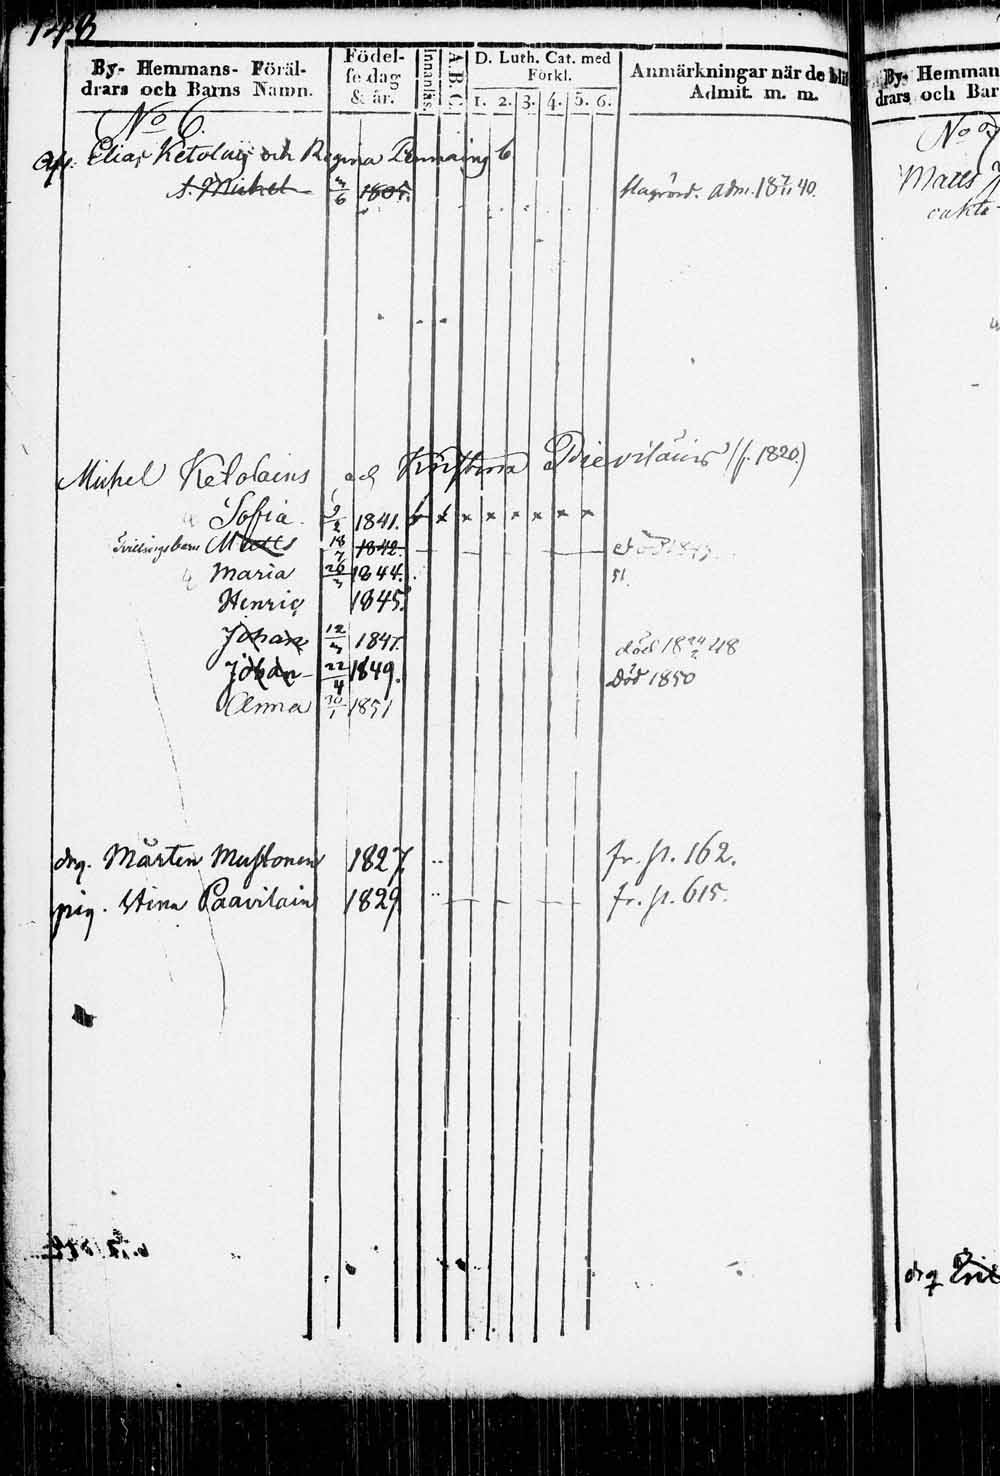 148
By- Hemmans- Föräl-
drars och Barns Namn.
Födel-
se dag
& år.
Innanläs.
A. B. C.
D. Luth. Cat. med
Förkl.
1. 2. 3. 4. 5. 6.
Anmärkningar när de bli
Admit. m. m.
No 6.
Afl. Elias Ketolain och Regina
s. Michel 6 1805. adm. 40.
Michel Ketolains och Kristina (f. 1820.)
Sofia 9/2 1841. x x x x x x x x
Tvillingsbarn Matts 18/7 1842.
Maria 20/3 1844. 51.
Henric 1845.
Johan 12/3 1847. död 18 24/2 48
Johan 22/4 1849. Död 1850
Anna 30/1 1851
drg. Mårten Mustonen 1827. fr. p. 162.
pig. Stina Paavilain 1829 fr. p. 615.
By- Hemman
drars och Bar
No
Matts
drg Eric